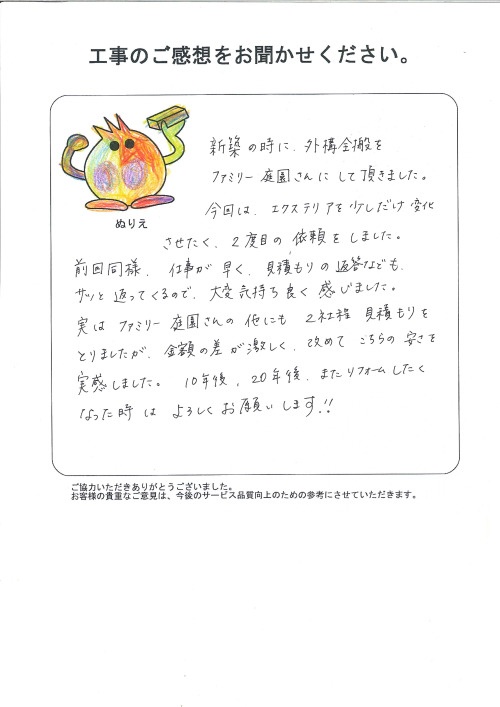 工事のご感想をお聞かせください。
ぬりえ
新築の時に、外構全般を
ファミリー庭園さんにして頂きました。
今回は、エクステリアを少しだけ変化
させたく、2度目の依頼をしました。
前回同様、仕事が早く、見積もりの返答なども、
サッと返ってくるので、大変気持ち良く感じました。
実はファミリー庭園さんの他にも2社程見積もりを
とりましたが、金額の差が激しく、改めてこちらの安さを
実感しました。10年後、20年後、またリフォームしたく
なった時はよろしくお願いします!!
ご協力いただきありがとうございました。
お客様の貴重なご意見は、今後のサービス品質向上のための参考にさせていただきます。